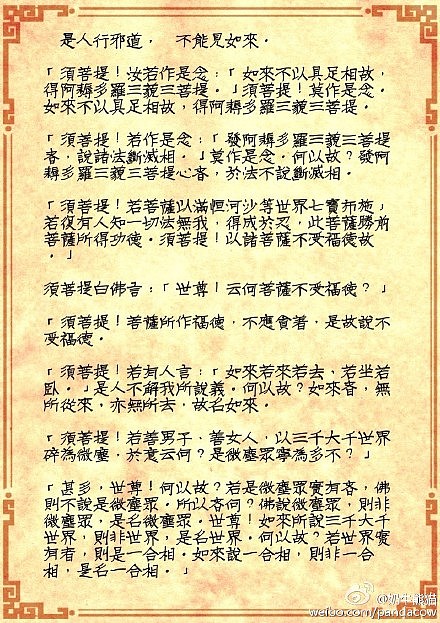 是人行邪道， 不能見如來。
「須菩提！汝若作是念：「如來不以具足相故，
得阿耨多羅三藐三菩提。」須菩提！莫作是念．
如來不以具足相故，得阿耨多羅三藐三菩提．
「須菩提！若作是念：「發阿耨多羅三藐三菩提
者．說諸法斷滅相。」莫作是念．何以故？發阿
耨多羅三藐三菩提心者，於法不說斷滅相．
「須菩提！若菩薩以滿恒河沙等世界七寶布施」
若復有人知一切法無我，得成於忍，此菩薩勝前
菩薩所得功德．須菩提！以諸菩薩不受福德故
。」
須菩提白佛言：「世尊！云何菩薩不受福德？」
「須菩提！菩薩所作福德．不應貪著．是故說不
受福德．
「須菩提！若有人言：「如來若來若去、若坐若
臥。」是人不解我所說義。何以故？如來者，無
所從來，亦無所去，故名如來．
「須菩提！若善男子、善女人，以三千大千世界
碎為微塵．於意云何？是微塵眾寧為多不？」
「甚多，世尊！何以故？若是微塵眾實有者，佛
則不說是微塵眾．所以者何？佛說微塵眾，則非
微塵眾，是名微塵眾。世尊！如來所說三千大千
世界，則非世界，是名世界．何以故？若世界實
有者，則是一合相．如來說一合相，則非一合
相，是名一合相。」
weibo.com/pandacow